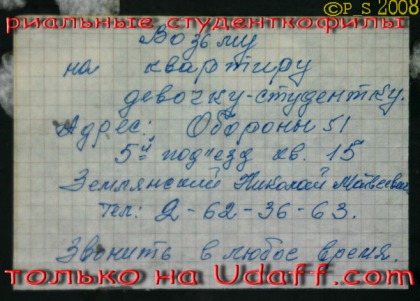 ©P S 2008
риальные студенткофилы
Возьму
на квартиру
девочку-студентку.
Адрес: Обороны 51
5й подъезд кв. 15
Землянский Николай Матвеевич
тел: 2-62-36-63.
Звонить в любое время.
только на Udaff.com